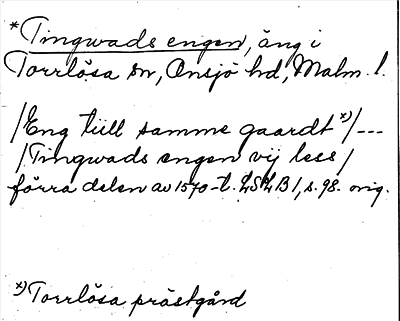 *Tingwads engen, äng i
Torrlösa sn, Onsjö hd, Malm. l.
/Eng tiill samme gaardt x)/---
/Tingwads engen vij less/
förra delen av 1570-t. LSLB1, s. 98. orig.
x) Torrlösa prästgård